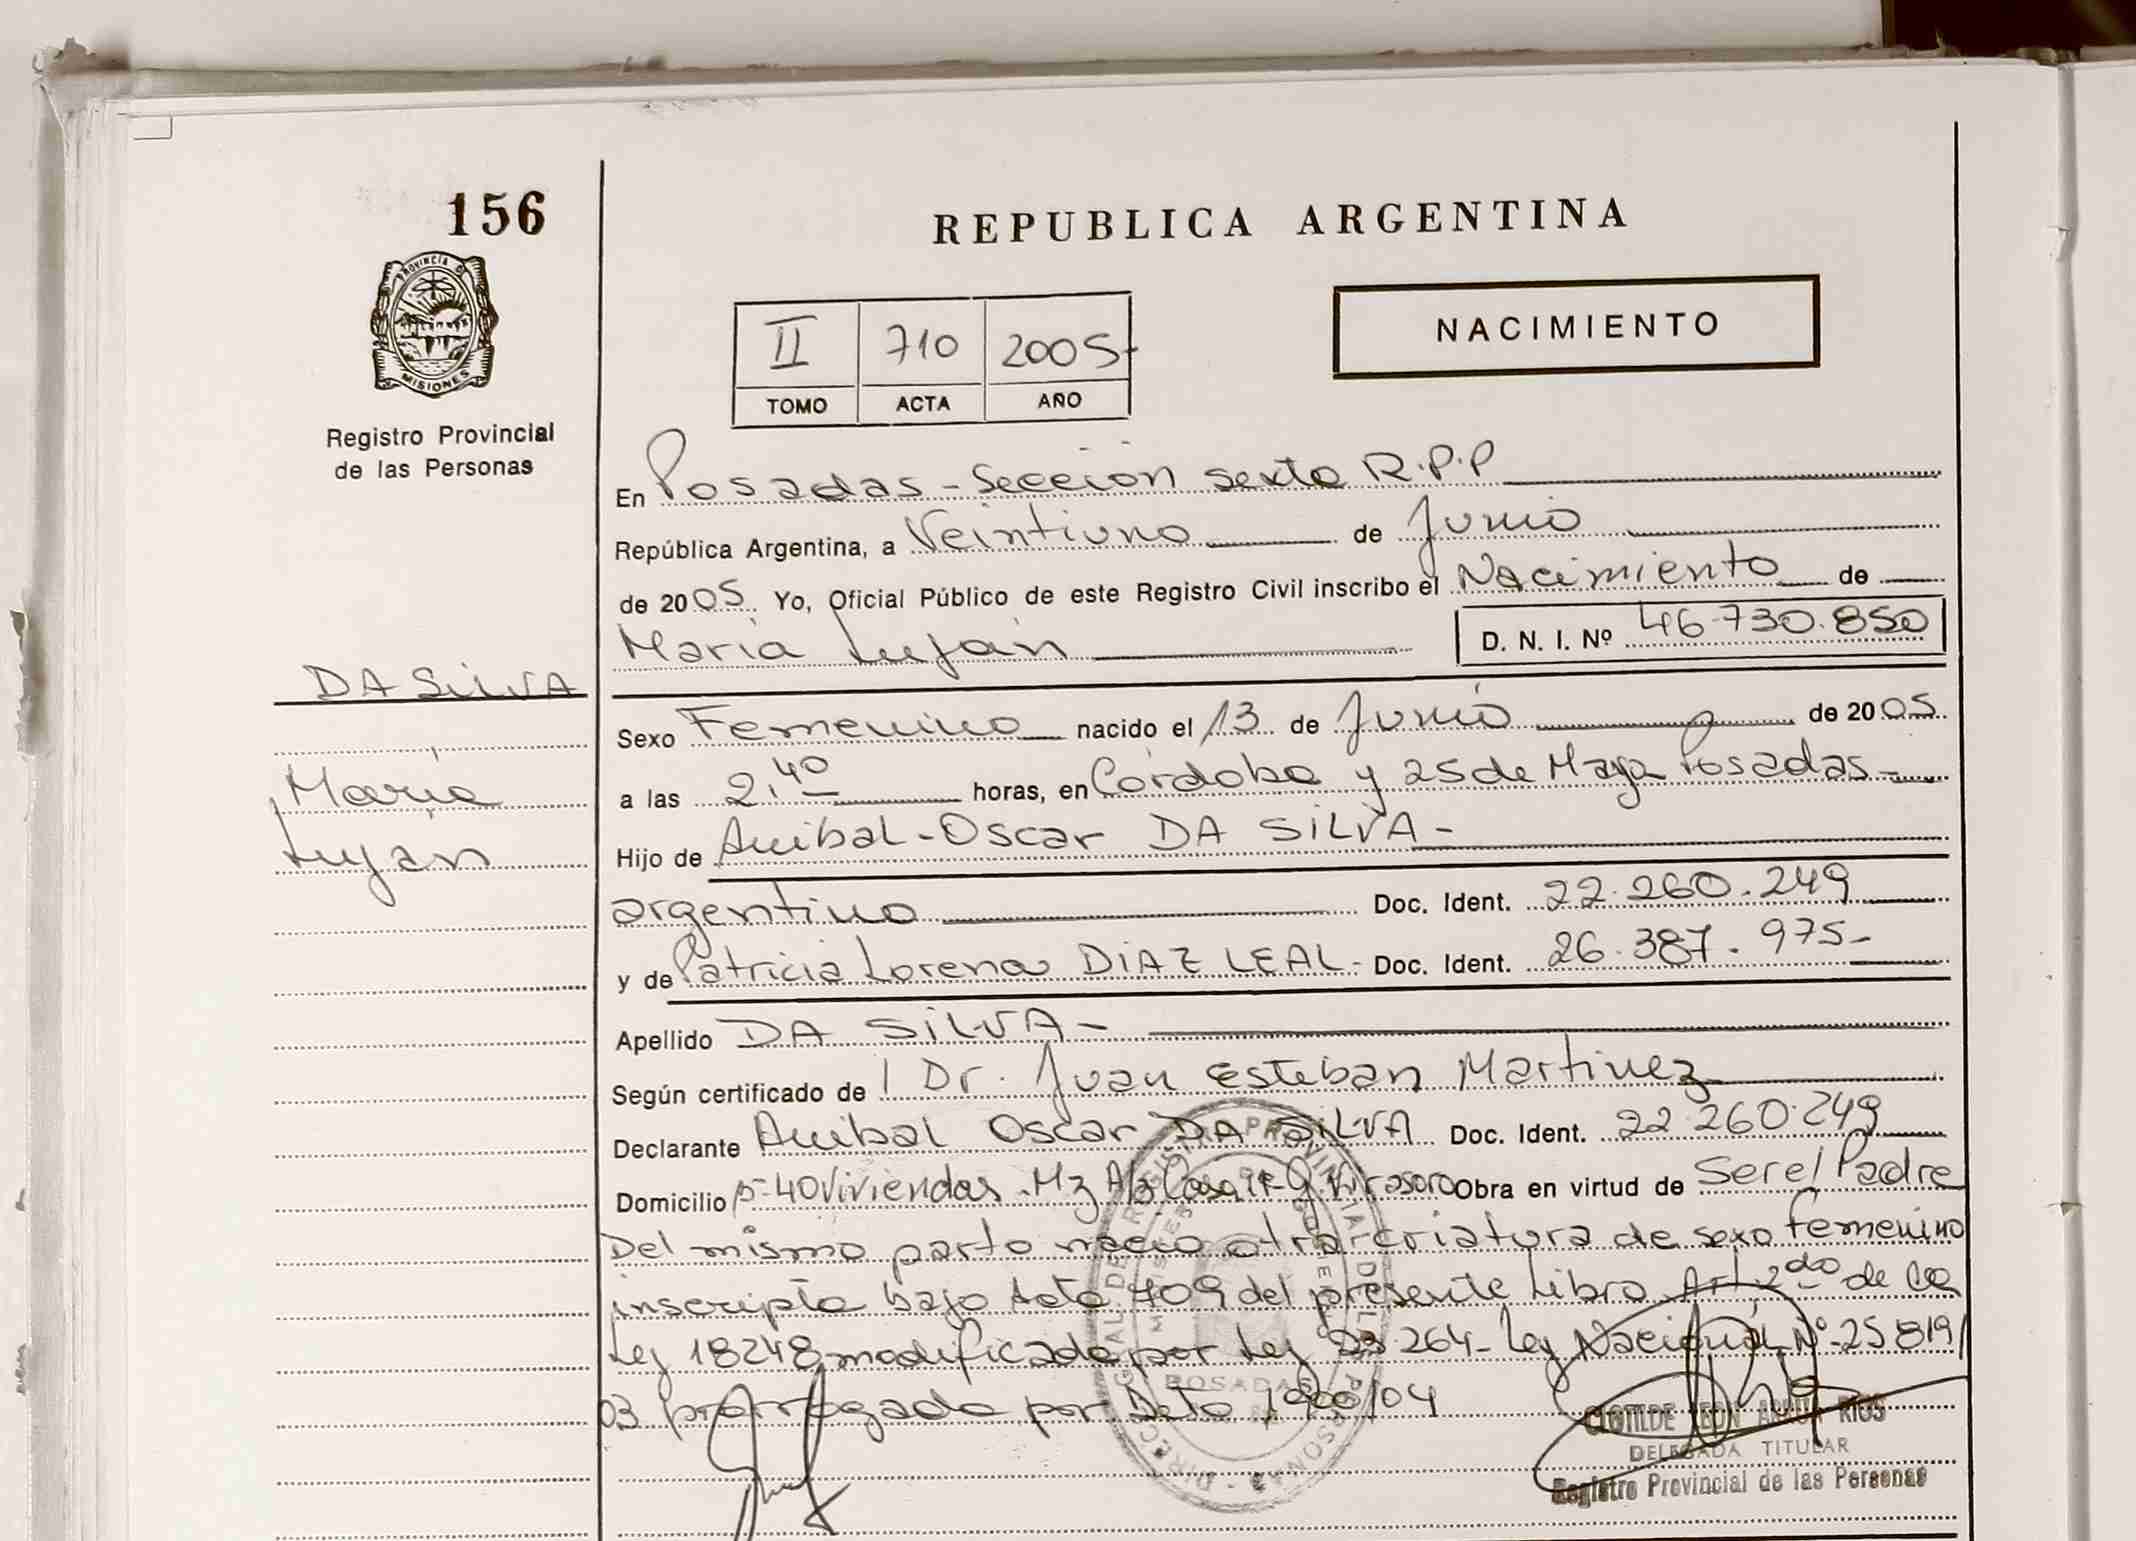 156
REPUBLICA ARGENTINA
PROVINCIA D MISIONES
Registro Provincial
de las Personas
II 710 2005
TOMO ACTA AÑO
NACIMIENTO
En Posadas - Sección sexta R.P.P
República Argentina, a Veintiuno de Junio
de 2005. Yo, Oficial Público de este Registro Civil inscribo el Nacimiento de
María Luján D. N. I. Nº 46.730.850
DA SILVA
María
Luján
Sexo Femenino nacido el 13 de Junio de 2005
a las 2.40 horas, en Córdoba y 25 de Mayo Posadas -
Hijo de Anibal - Oscar DA SILVA -
argentino Doc. Ident. 22.260.249
y de Patricia Lorena DIAZ LEAL - Doc. Ident. 26.387.975 -
Apellido DA SILVA -
Según certificado de l Dr. Juan Esteban Martinez
Declarante Anibal Oscar DA SILVA Doc. Ident. 22.260.249
Domicilio 40 Viviendas Mz Casa Virasoro Obra en virtud de Ser el Padre
Del mismo parto nacio otra criatura de sexo femenino
inscripta bajo Acta 709 del presente Libro Art 2do de la
Ley 18248 modificado por Ley 23264 - Ley Nacional Nº 25819/
03 prorrogado por Dcto 1900/04
POSADAS
CLOTILDE LEON RIOS
DELEGADA TITULAR
Registro Provincial de las Personas